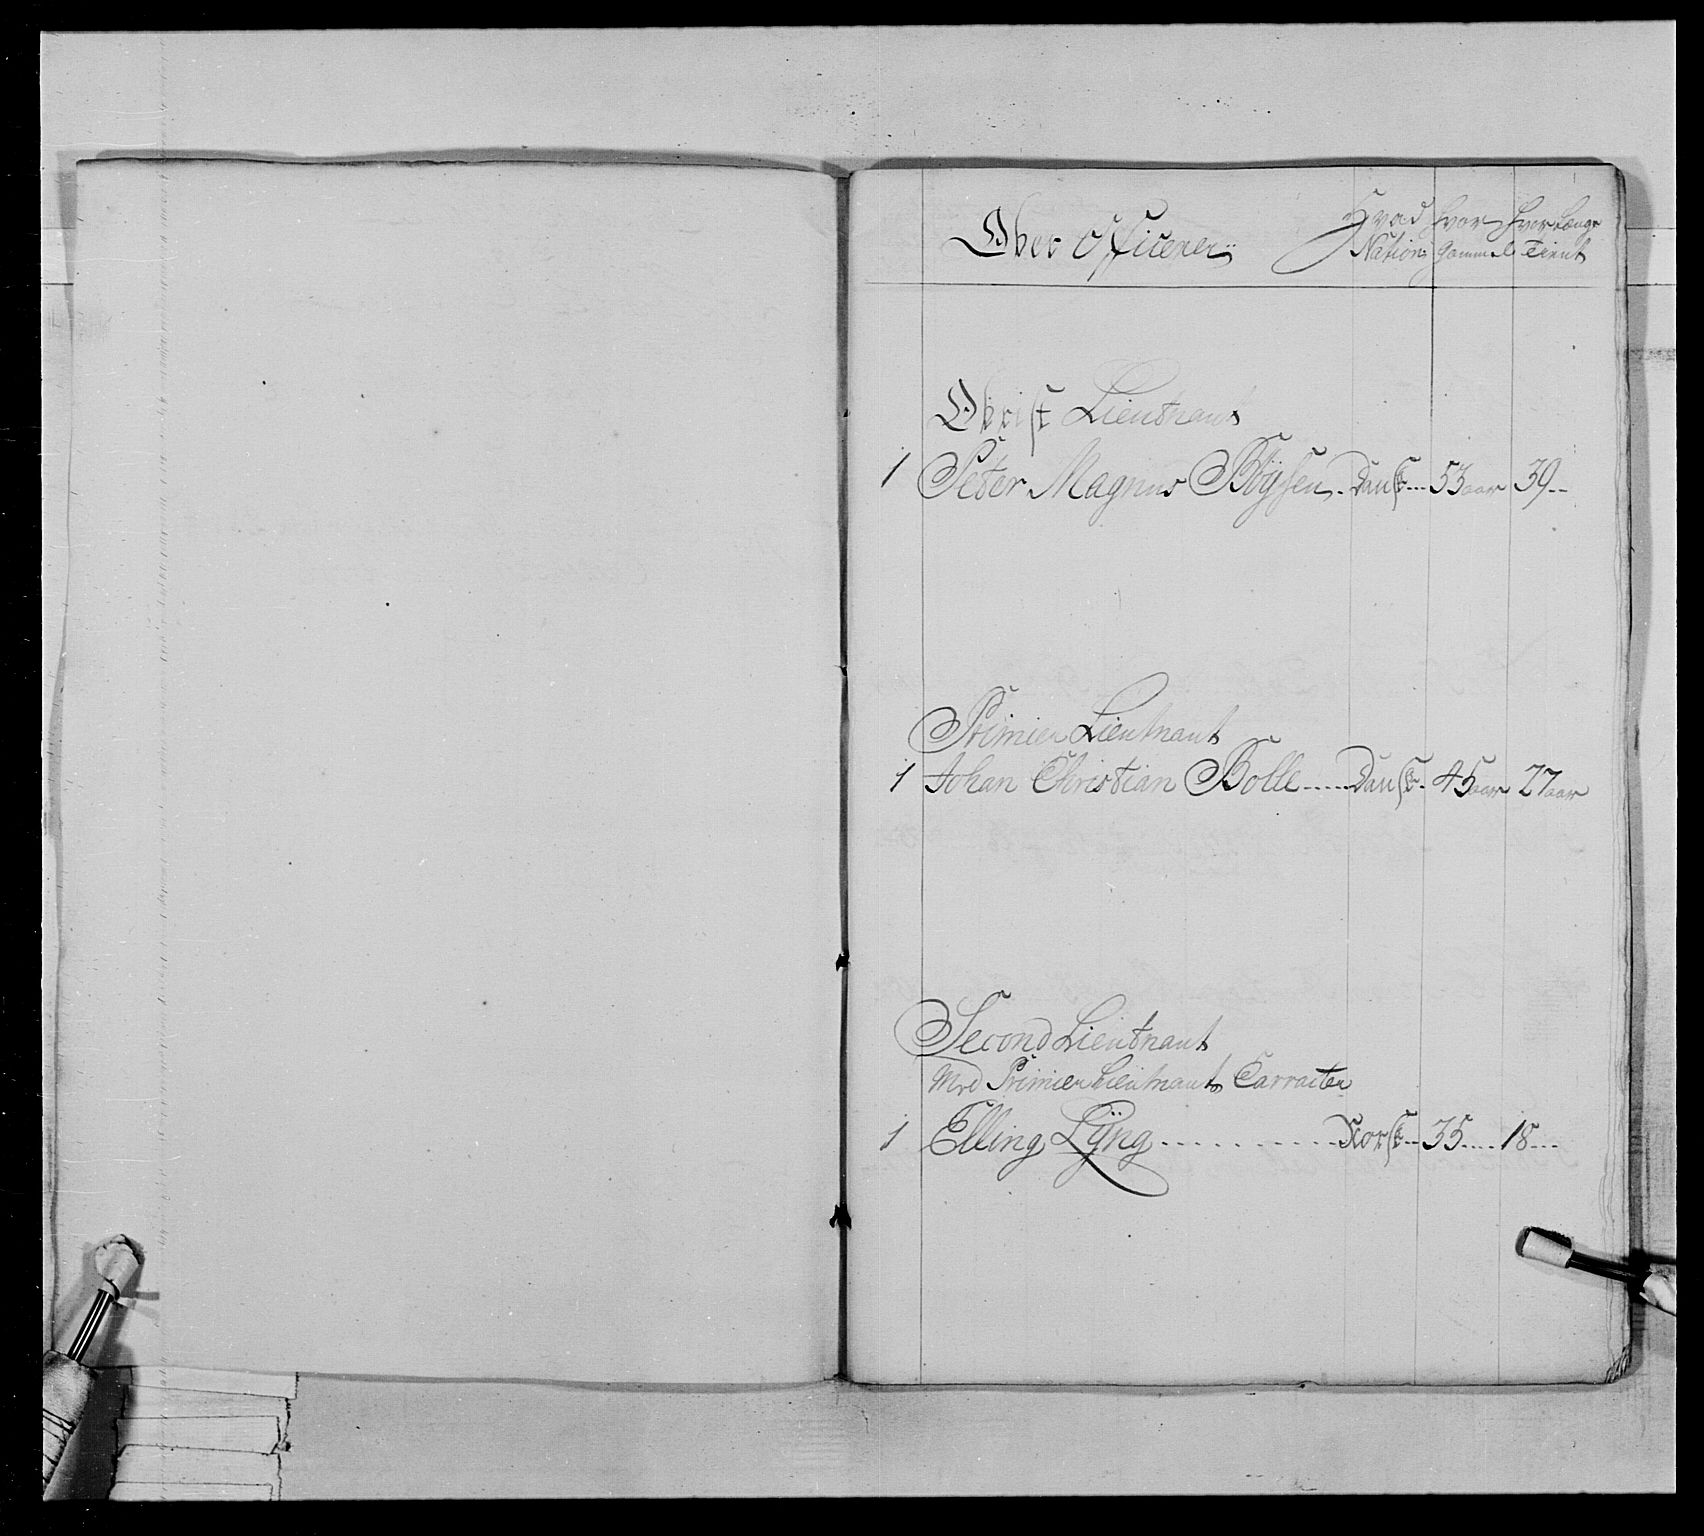 Ober Officerer
Hvad Nation
hvor gammel
hvor Længe Tient
Obrist Lieutnant
1 Peter Magnus Böysen Dansk 53 aar 39
Primier Lieutnant
1 Johan Christian Bolle Dansk 45 aar 27 aar
Second Lieutnant
Med Primier Lieutnants Carracter
1 Elling Lÿng Norsk 35 18